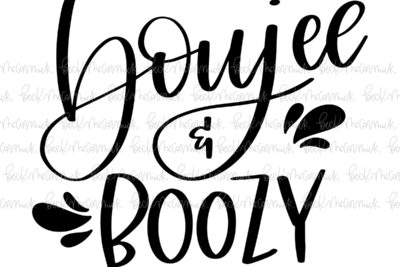 boujee
&
BOOZY